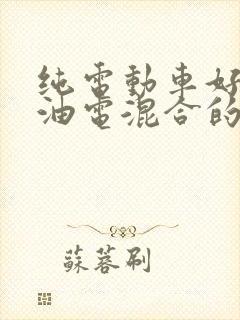 纯電動車好
油電混合的
蘇蓉刷